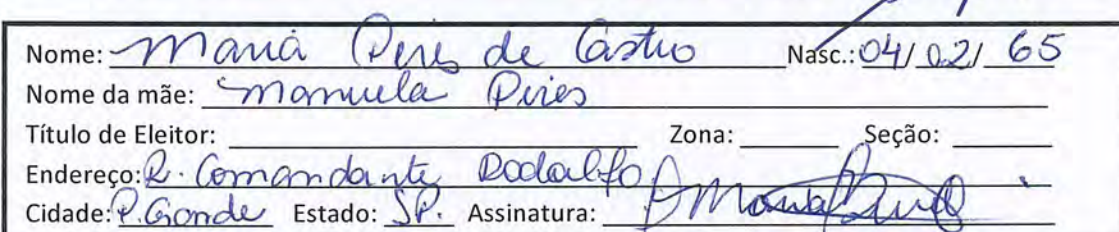 Nome: Maria Pires de Castro Nasc.: 04/02/65
Nome da mãe: Manuela Pires
Título de Eleitor: Zona: Seção:
Endereço: R. Comandante
Cidade: P. Grande Estado: SP. Assinatura: Maria